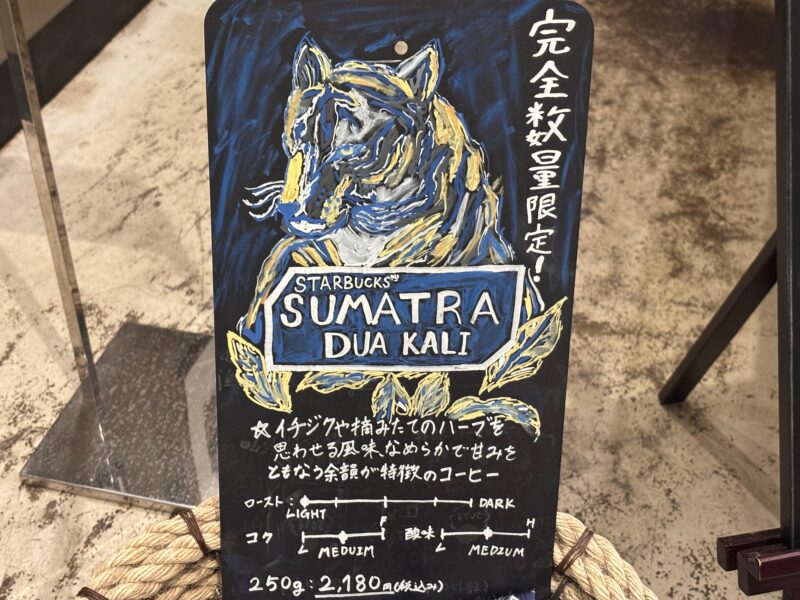 完全数量限定!
STARBUCKS®
SUMATRA
DUA KALI
☆イチジクや摘みたてのハーブを
思わせる風味、なめらかで甘みを
ともなう余韻が特徴のコーヒー
ロースト: LIGHT DARK
コク L MEDUIM F
酸味 L MEDIUM H
250g:2,180円(税込み)